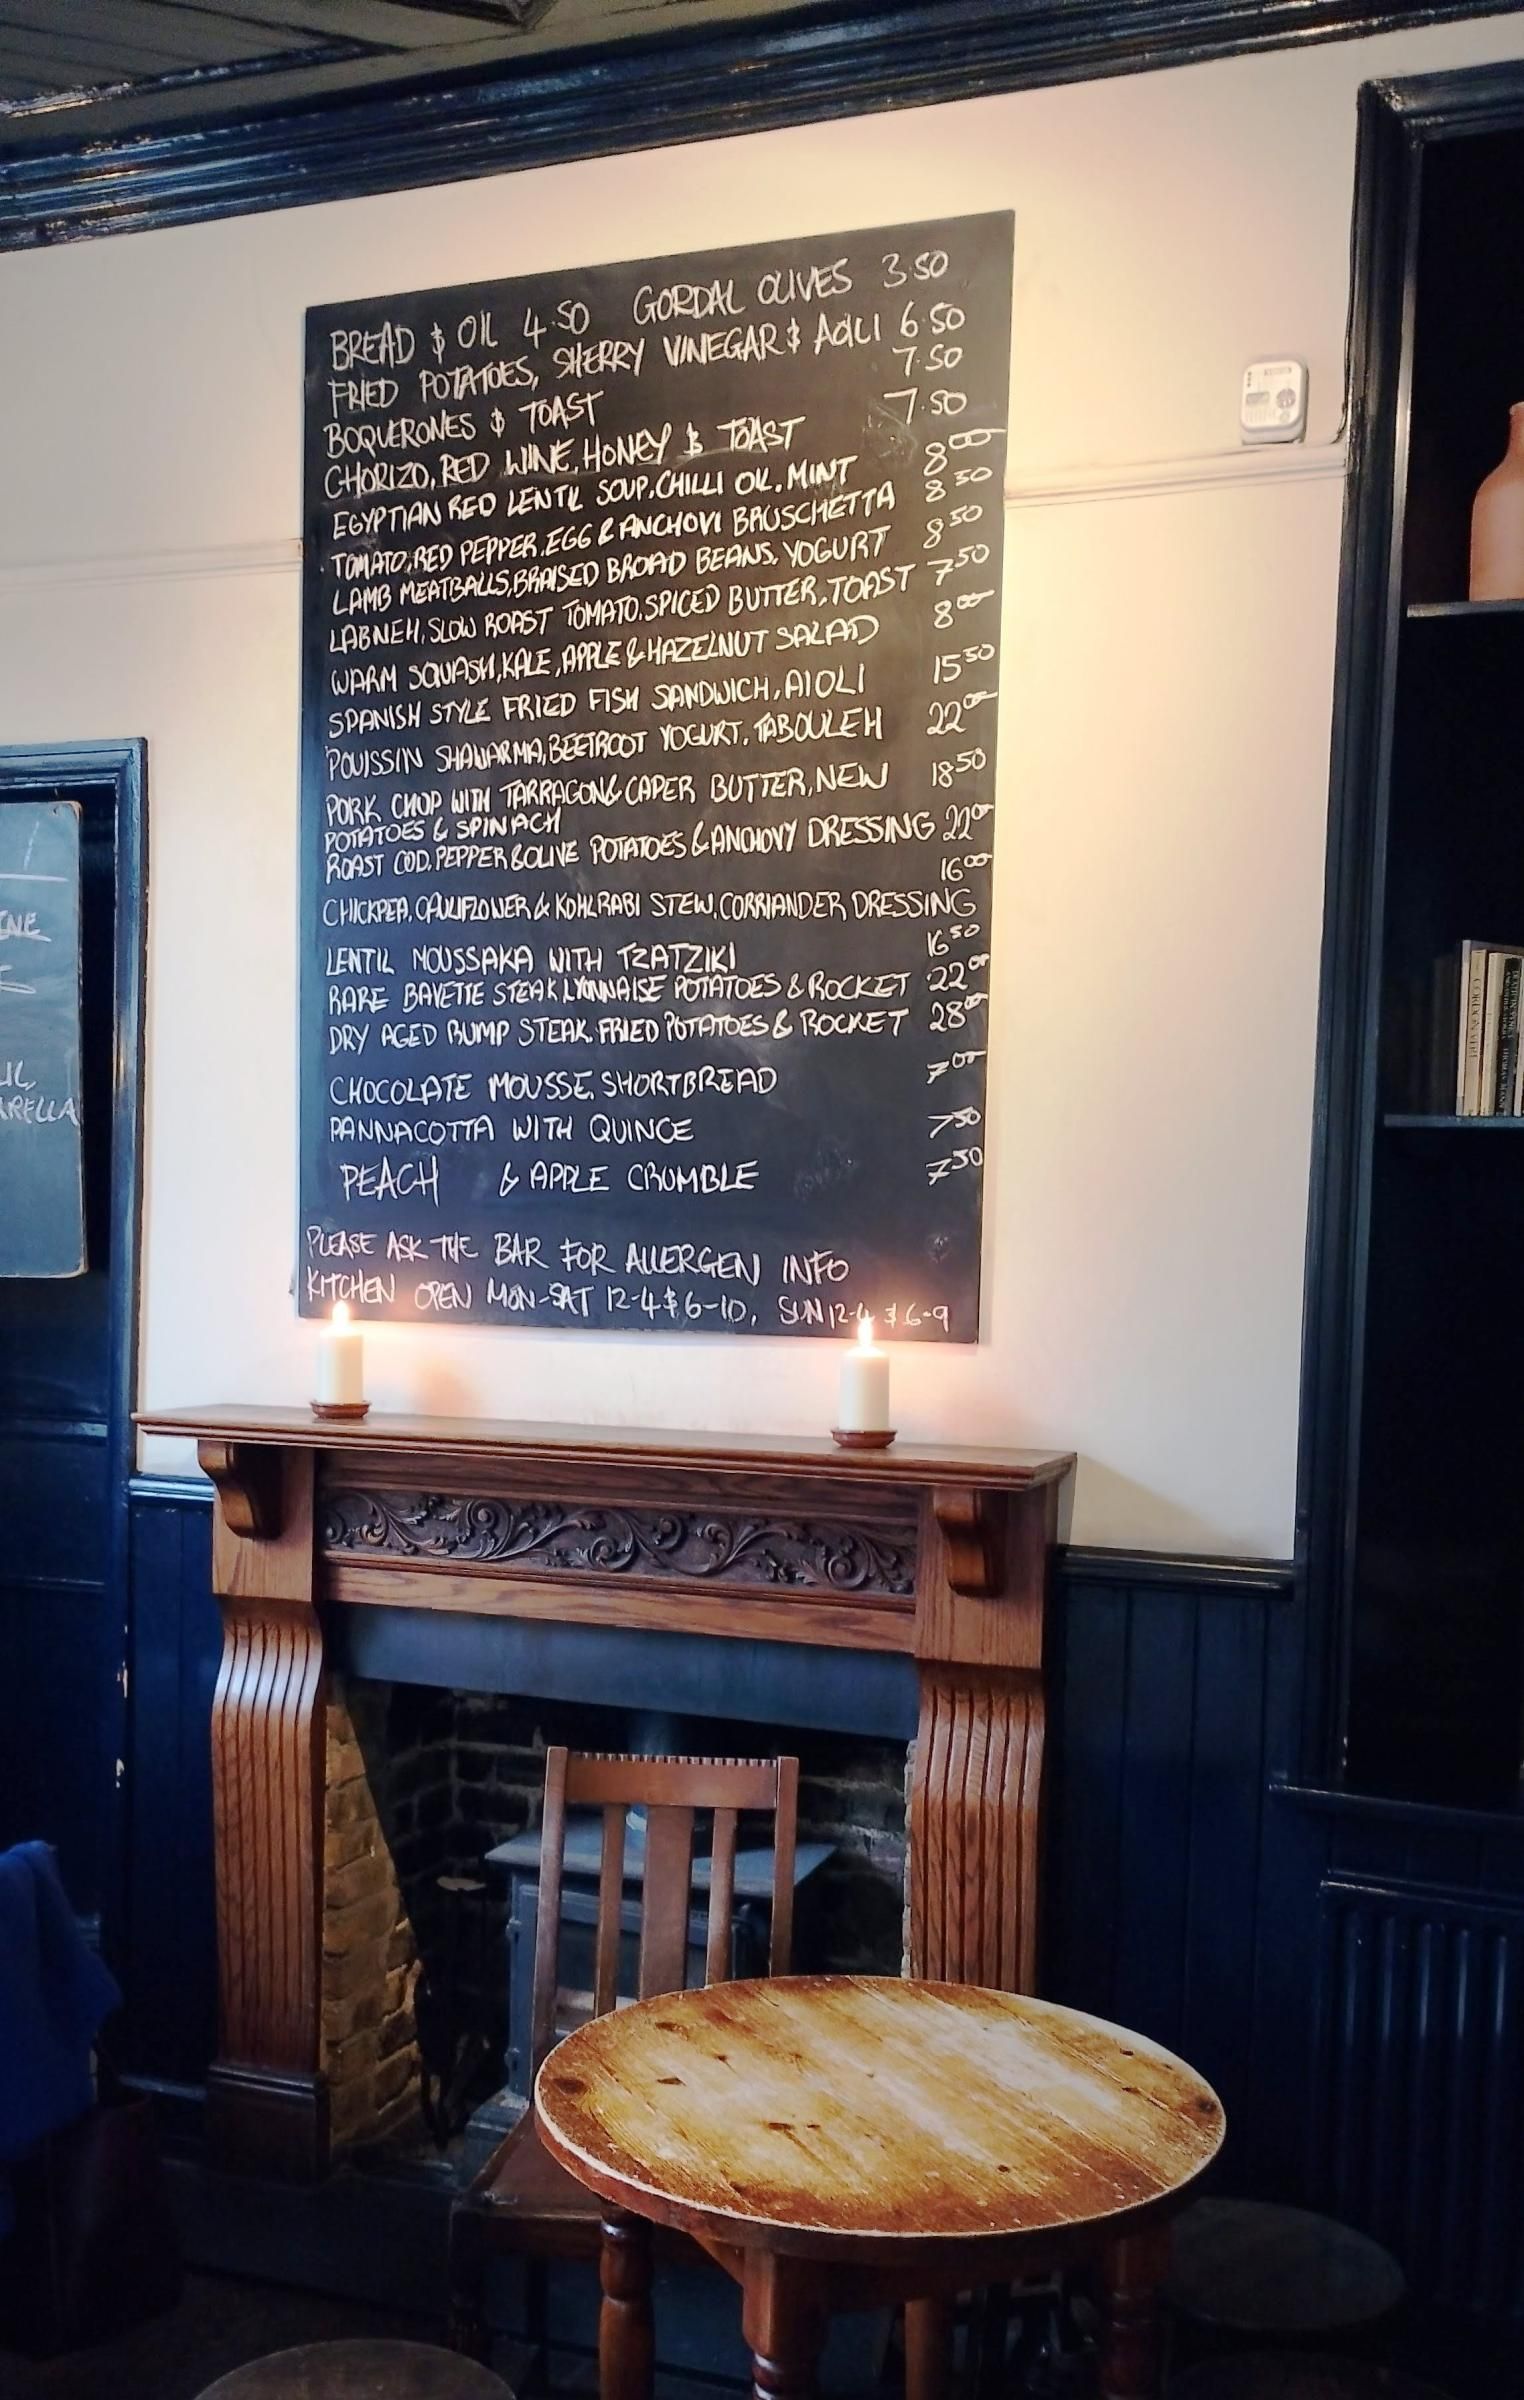 BREAD & OIL 4.50 GORDAL OLIVES 3.50
FRIED POTATOES, SHERRY VINEGAR & AOILI 6.50
BOQUERONES & TOAST 7.50
CHORIZO, RED WINE, HONEY & TOAST 7.50
EGYPTIAN RED LENTIL SOUP, CHILLI OIL, MINT 8.00
TOMATO, RED PEPPER, EGG & ANCHOVI BRUSCHETTA 8.50
LAMB MEATBALLS, BRAISED BROAD BEANS, YOGURT 8.50
LABNEH, SLOW ROAST TOMATO, SPICED BUTTER, TOAST 7.50
WARM SQUASH, KALE, APPLE & HAZELNUT SALAD 8.00
SPANISH STYLE FRIED FISH SANDWICH, AIOLI 15.50
POUSSIN SHAWARMA, BEETROOT YOGURT, TABOULEH 22.00
PORK CHOP WITH TARRAGON & CAPER BUTTER, NEW 18.50
POTATOES & SPINACH
ROAST COD, PEPPER & OLIVE POTATOES & ANCHOVY DRESSING 22.00
16.00
CHICKPEA, CAULIFLOWER & KOHLRABI STEW, CORRIANDER DRESSING
LENTIL MOUSSAKA WITH TZATZIKI 16.50
RARE BAVETTE STEAK LYONNAISE POTATOES & ROCKET 22.00
DRY AGED RUMP STEAK, FRIED POTATOES & ROCKET 28.00
CHOCOLATE MOUSSE, SHORTBREAD 7.00
PANNACOTTA WITH QUINCE 7.50
PEACH & APPLE CRUMBLE 7.50
PLEASE ASK THE BAR FOR ALLERGEN INFO
KITCHEN OPEN MON-SAT 12-4 & 6-10, SUN 12-4 & 6-9
CORDON VERT